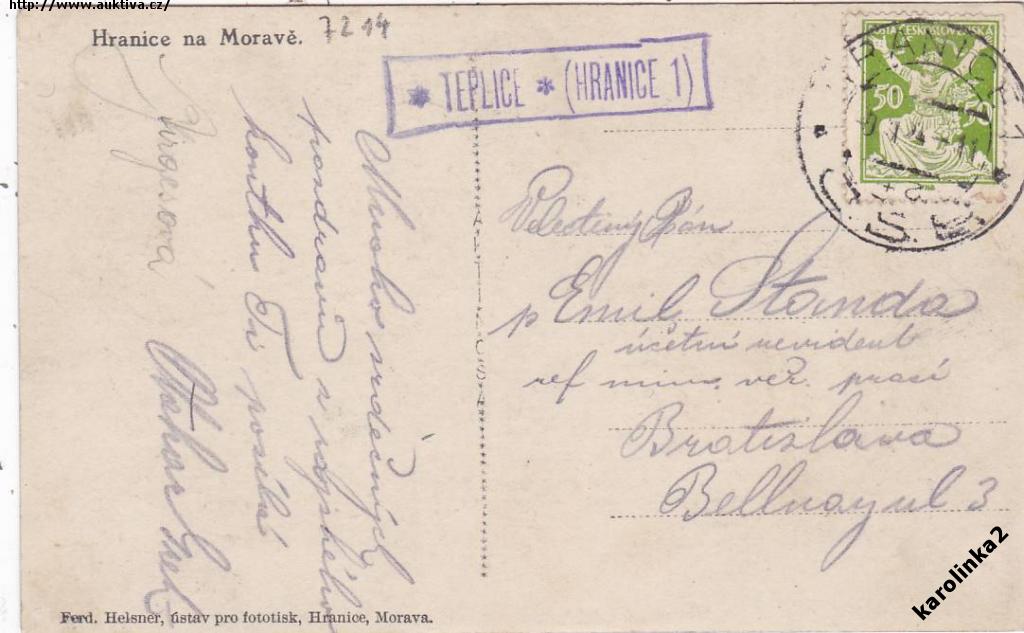 http://www.auktiva.cz/
Hranice na Moravě.
7214
* TEPLICE * (HRANICE 1)
POŠTA ČESKOSLOVENSKÁ
50 50
HRANICE 1
Mnoho srdečných
pozdravů z
Ti posílá
Jirácsová
Velectěný Pán
p Emil Standa
účetní revident
ref min. veř. prací
Bratislava
Bellnay ul 3
Ferd. Helsner, ústav pro fototisk, Hranice, Morava.
karolinka2